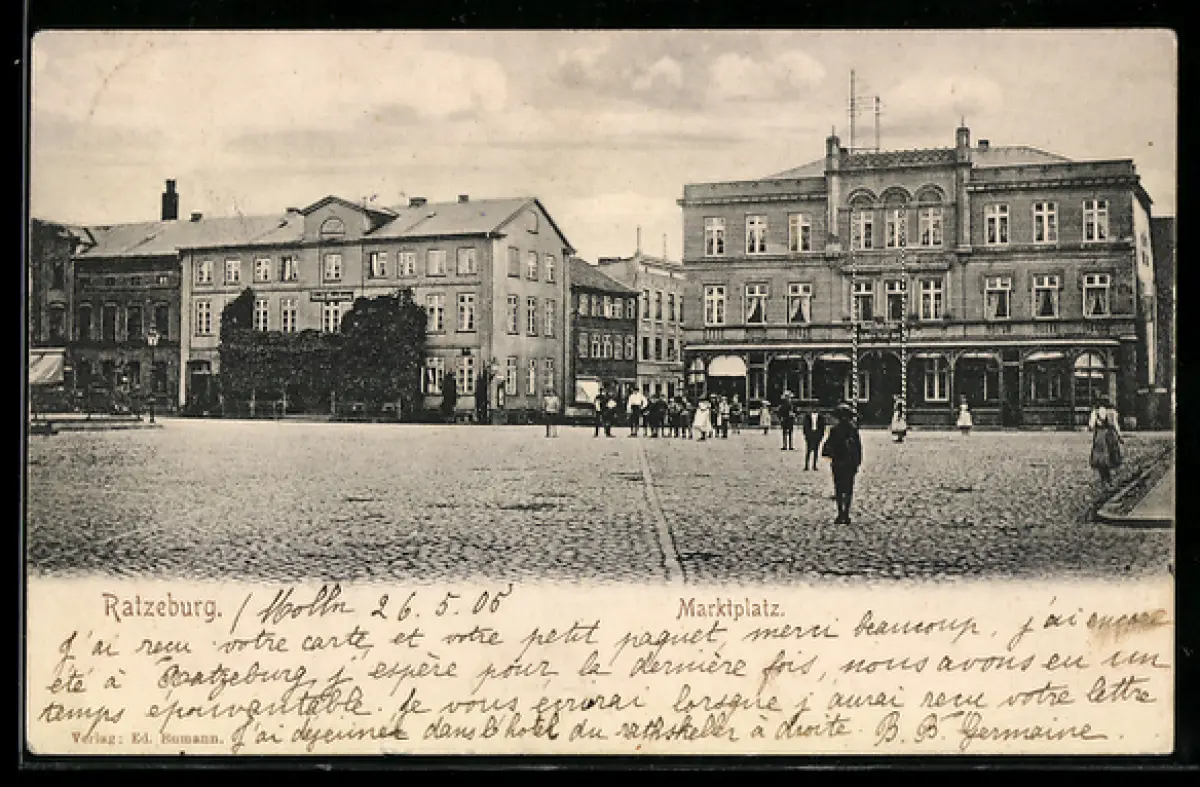 Ratzeburg. / Molln 26.5.05 Marktplatz.
J'ai recu votre carte, et votre petit paquet, merci beaucoup, j'ai encore
été à Ratzeburg, j'espère pour la dernière fois, nous avons eu un
temps épouvantable. Je vous écrirai lorsque j'aurai recu votre lettre
Verlag: Ed. Bumann. J'ai dejeuner dans l'hotel du rathskeller à droite. B. B. Germaine.